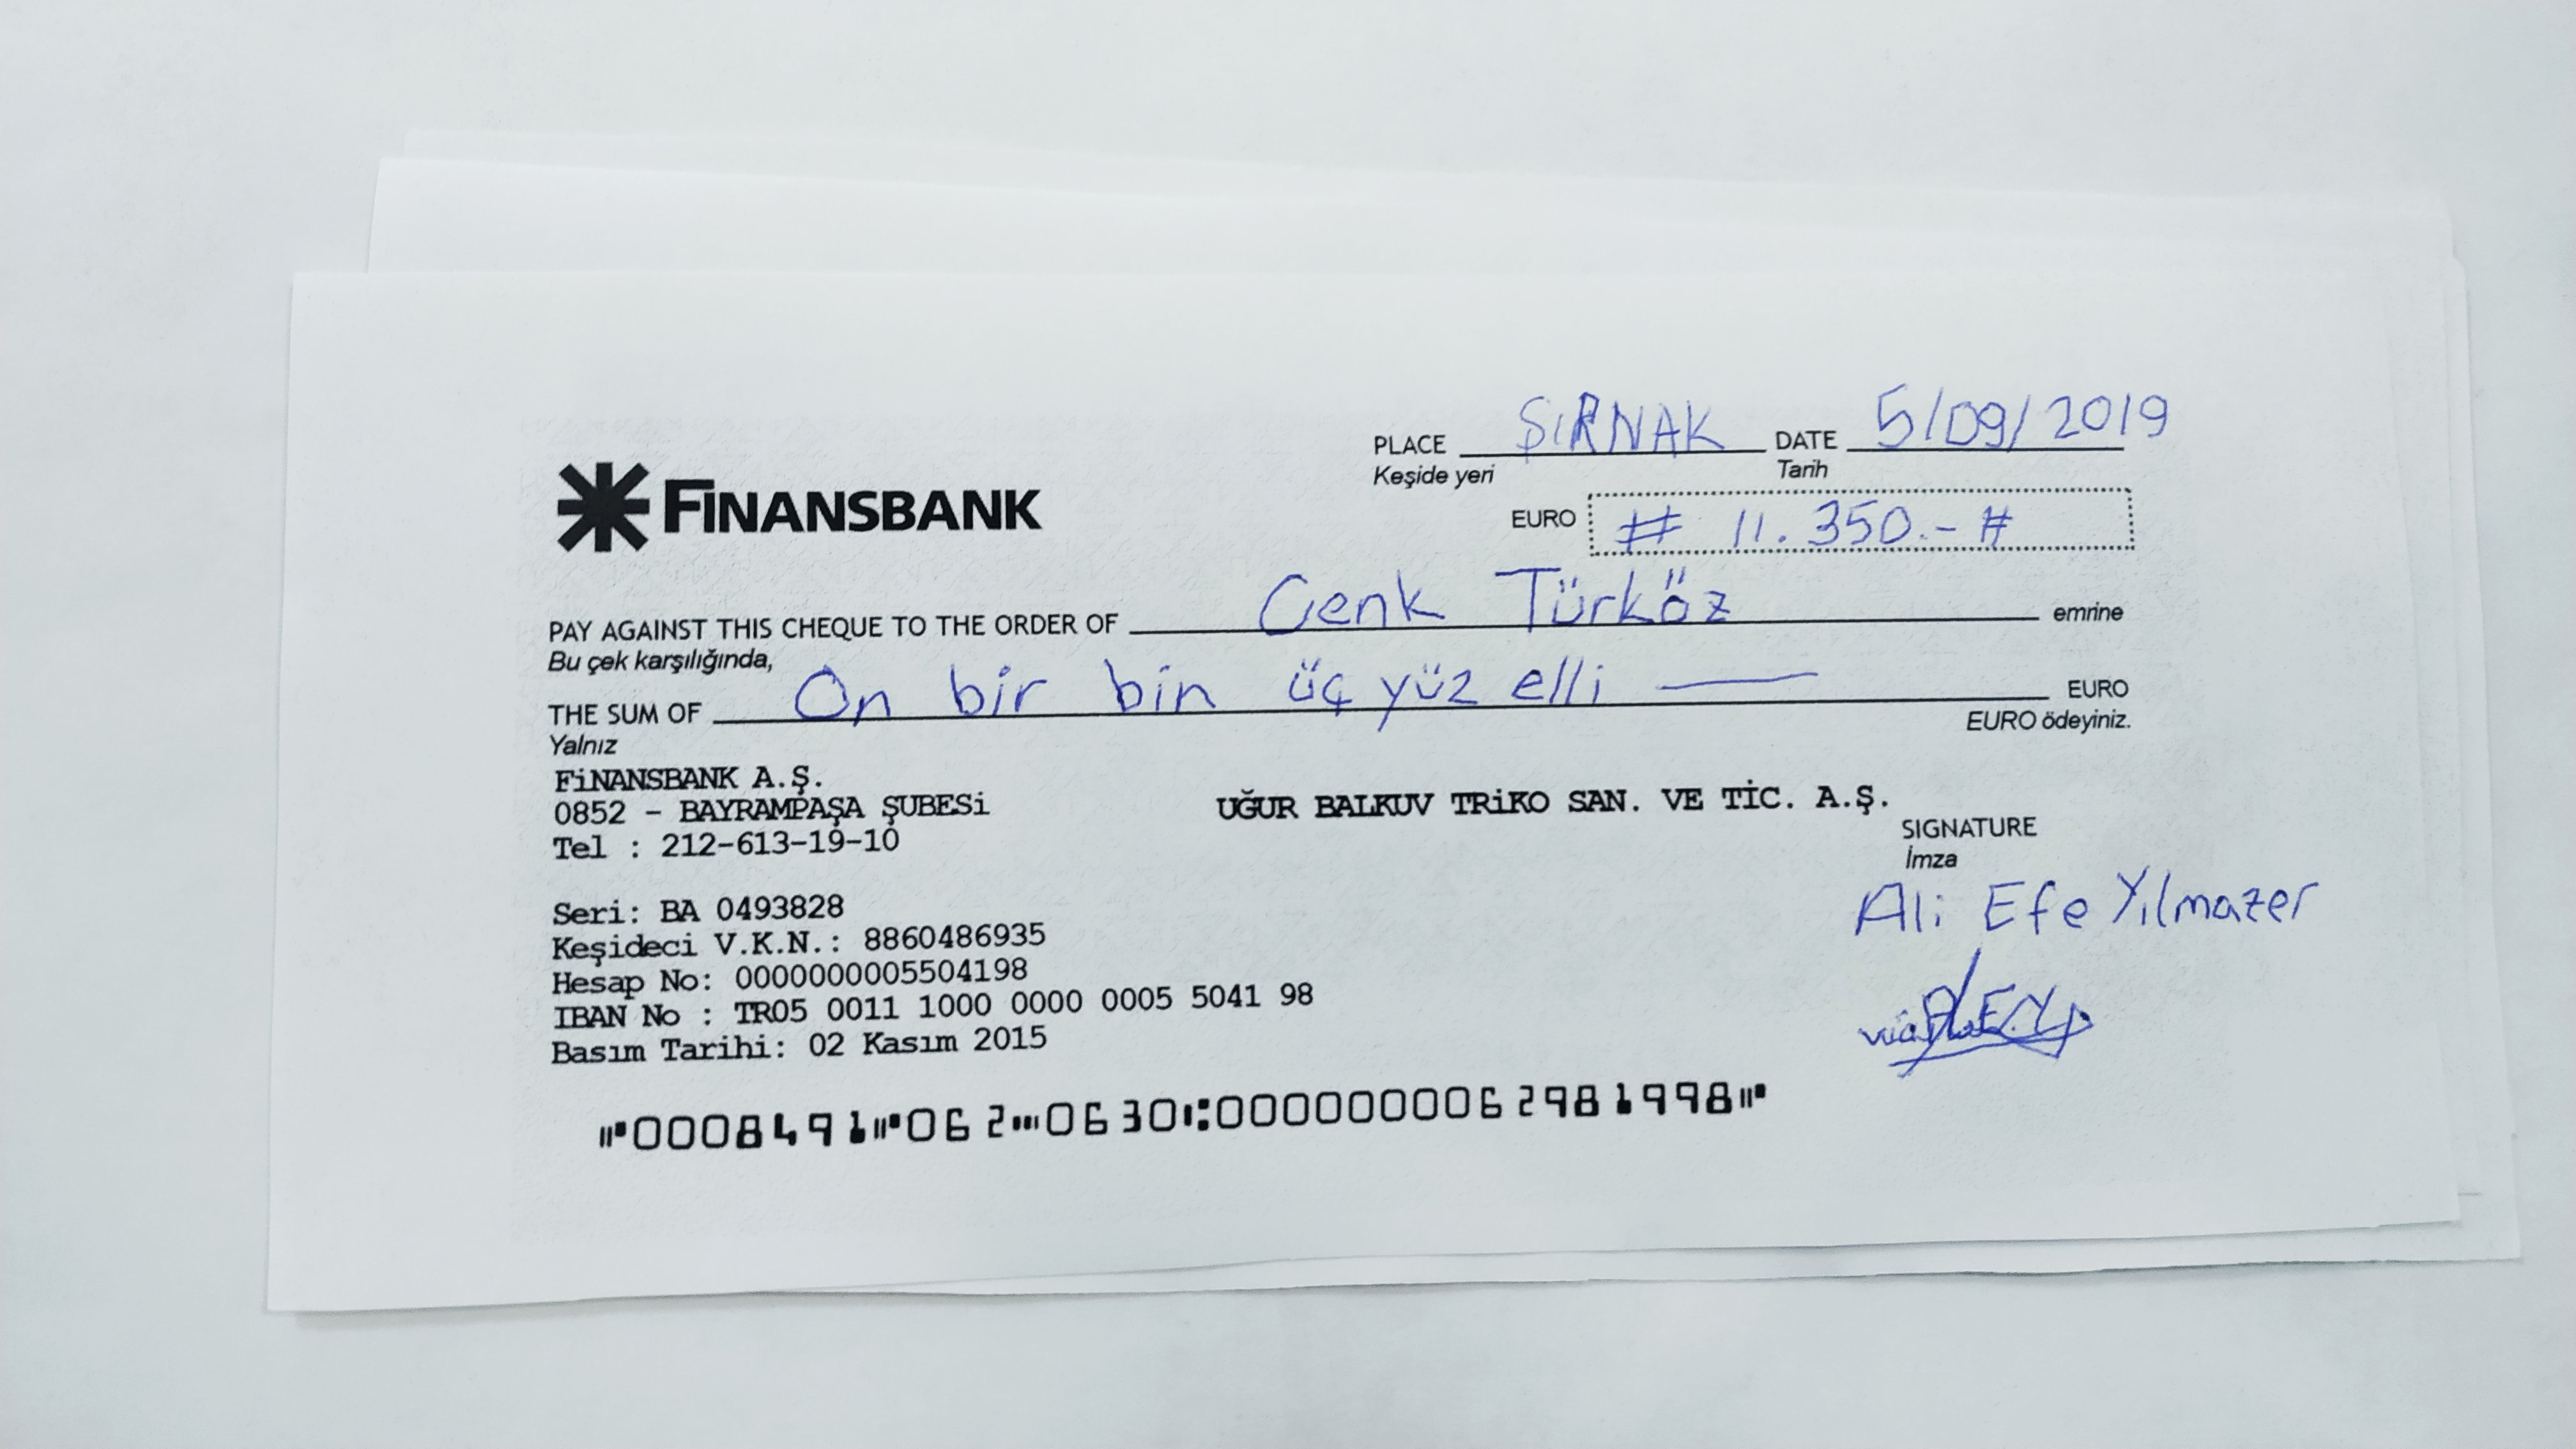 PLACE ŞIRNAK DATE 5/09/2019
Keşide yeri Tarih
FİNANSBANK
EURO # 11.350.- #
PAY AGAINST THIS CHEQUE TO THE ORDER OF Cenk Türköz emrine
Bu çek karşılığında,
THE SUM OF On bir bin üç yüz elli — EURO
Yalnız EURO ödeyiniz.
FİNANSBANK A.Ş.
0852 - BAYRAMPAŞA ŞUBESİ
Tel : 212-613-19-10
UĞUR BALKUV TRİKO SAN. VE TİC. A.Ş.
SIGNATURE
İmza
Ali Efe Yılmazer
Seri: BA 0493828
Keşideci V.K.N.: 8860486935
Hesap No: 0000000005504198
IBAN No : TR05 0011 1000 0000 0005 5041 98
Basım Tarihi: 02 Kasım 2015
⑈0008491⑈062⑉0630⑆0000000062981998⑈